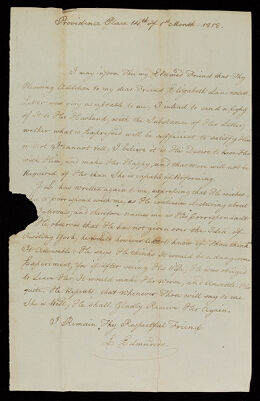 Providence Place 14th of 1st Month 1818.
I may inform thee my Esteemed Friend that thy
Pleasing Addition to my dear Friend Elizabeth
Letter was very acceptable to me, I intend to send a Copy
of it to Her Husband, with the Substance of Her Letter,
wether what is Expressed will be sufficient to satisfy Him
or not I cannot tell, I believe it is His Desire to have Her
with Him, and make Her Happy, and that more will not be
Required of Her than She is capable of Performing.
He has written again to me, expressing that He wishes
to correspond with me, as He continues Lecturing about
and therefore names me as His Correspondent
He observes that He has not given over the Idea of
Visiting York, He wishes however to know if Thou think
it Advisable. He says He thinks it would be a dangerous
Experiment, for if after seeing His Wife, He was obliged
to Leave Her, it would make Her Worse, and Unsettle Him
quite. He Repeats that whenever Thou will say to me
She is Well, He shall Gladly Receive Her again.
I Remain Thy Respectful Friend
E Edmunds